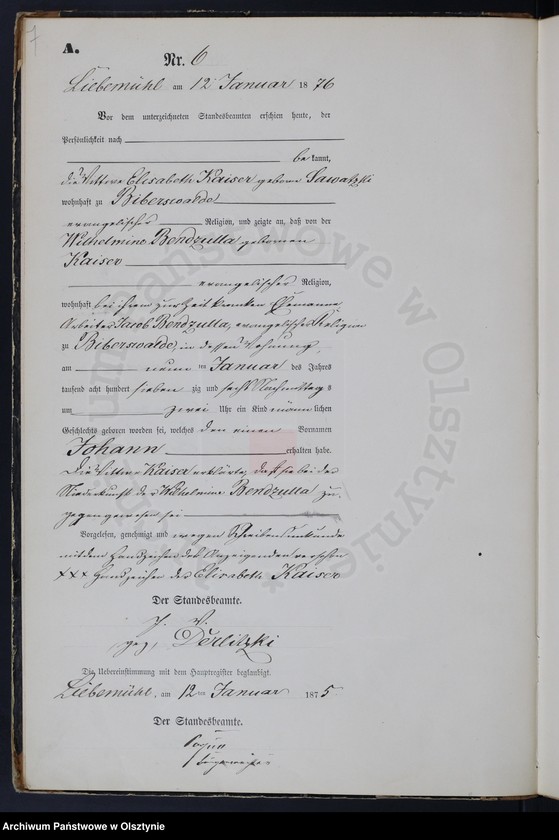 7
A.
Nr. 6
Liebemühl am 12 Januar 1876
Vor dem unterzeichneten Standesbeamten erschien heute, der
Persönlichkeit nach
be kannt,
die Wittwe Elisabeth Kaiser geborne Sawatzki
wohnhaft zu Biberswalde
evangelischer Religion, und zeigte an, daß von der
Wilhelmine Bendzulla geborenen
Kaiser
evangelischer Religion,
wohnhaft bei ihrem zur Zeit kranken Ehemanne,
Arbeiter Jacob Bendzulla, evangelischer Religion
zu Biberswalde, in dessen Wohnung,
am neun ten Januar des Jahres
tausend acht hundert sieben zig und sechs Nachmittags
um zwei Uhr ein Kind männ lichen
Geschlechts geboren worden sei, welches den einen Vornamen
Johann erhalten habe.
Die Wittwe Kaiser erklärte, daß sie bei der
Niederkunft der Wilhelmine Bendzulla zu-
gegen gewesen sei
Vorgelesen, genehmigt und wegen Schreibensunkunde
mit dem Handzeichen des Anzeigenden versehen
+++ Handzeichen der Elisabeth Kaiser
Der Standesbeamte.
J. V.
gez. Derlitzki
Die Uebereinstimmung mit dem Hauptregister beglaubigt.
Liebemühl, am 12 ten Januar 1875
Der Standesbeamte.
Archiwum Państwowe w Olsztynie
Archiwum Państwowe w Olsztynie